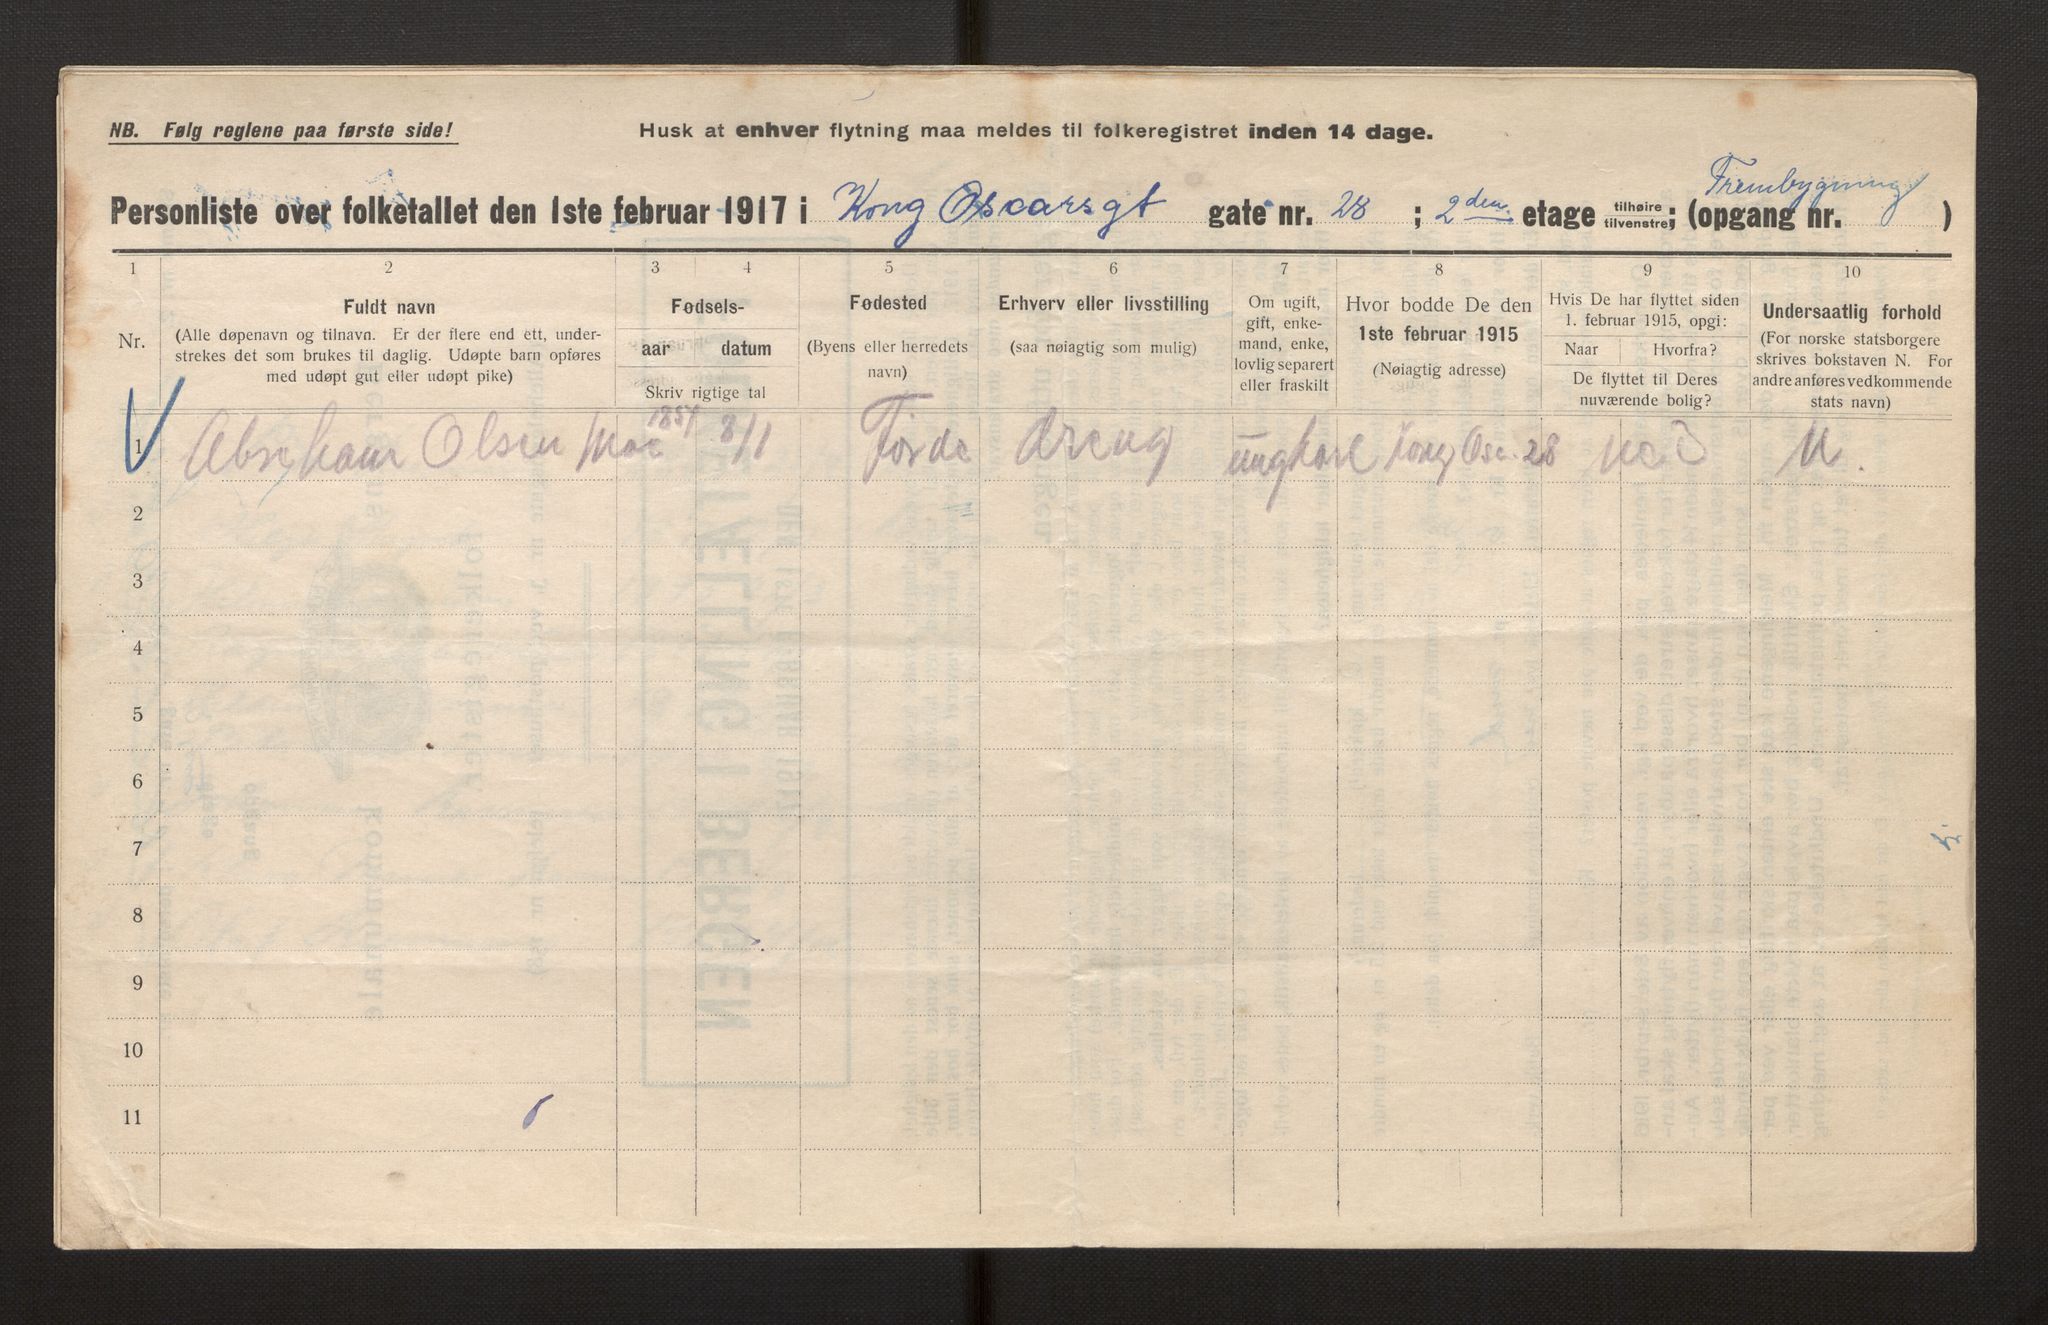 NB. Følg reglene paa første side!
Husk at enhver flytning maa meldes til folkeregistret inden 14 dage.
Frembygning
Personliste over folketallet den 1ste februar 1917 i Kong Oscarsgt gate nr. 28 ; 2den etage tilhøire tilvenstre; (opgang nr. )
1 2 3 4 5 6 7 8 9 10
Nr.
Fuldt navn
(Alle døpenavn og tilnavn. Er der flere end ett, under-
strekes det som brukes til daglig. Udøpte barn opføres
med udøpt gut eller udøpt pike)
Fødsels-
aar datum
Skriv rigtige tal
Fødested
(Byens eller herredets
navn)
Erhverv eller livsstilling
(saa nøiagtig som mulig)
Om ugift,
gift, enke-
mand, enke,
lovlig separert
eller fraskilt
Hvor bodde De den
1ste februar 1915
(Nøiagtig adresse)
Hvis De har flyttet siden
1. februar 1915, opgi:
Naar Hvorfra?
De flyttet til Deres
nuværende bolig?
Undersaatlig forhold
(For norske statsborgere
skrives bokstaven N. For
andre anføres vedkommende
stats navn)
1 Abraham Olsen Moe 1854 8/1 Förde dreng ungkarl Kong Osc. 28 N.
2
3
4
5
6
7
8
9
10
11